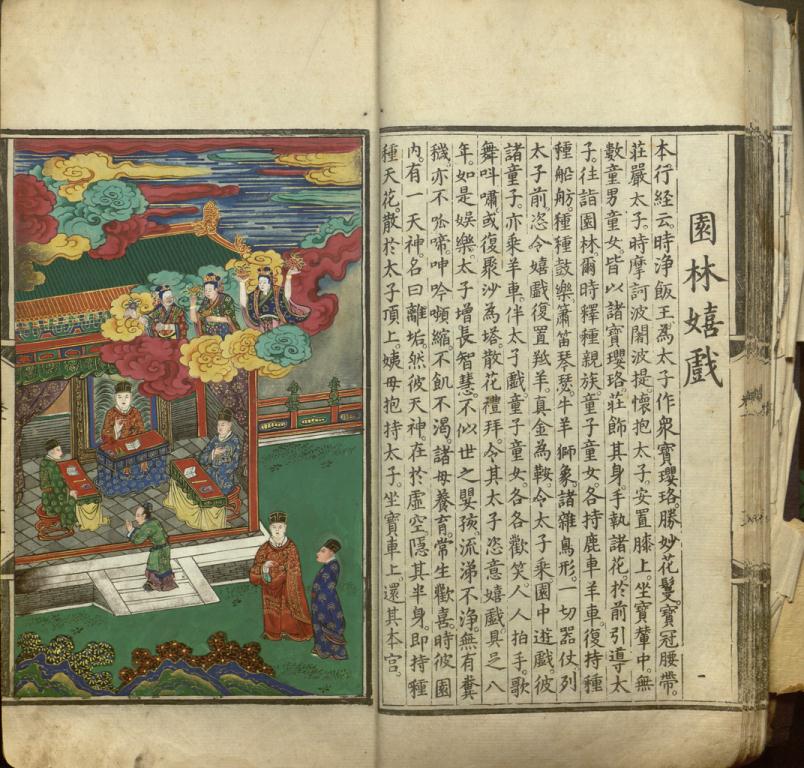 園林嬉戲
本行經云。時淨飯王為太子作眾寶瓔珞。勝妙花鬘。寶冠腰帶。
莊嚴太子。時摩訶波闍波提。懷抱太子。安置膝上。坐寶輦中。無
數童男童女。皆以諸寶瓔珞。莊飾其身。手執諸花。於前引導。太
子。往詣園林。爾時釋種親族。童子童女。各持鹿車羊車。復持種
種船舫。種種鼓樂。簫笛琴瑟。牛羊獅象。諸雜鳥形。一切器仗。列
太子前。恣令嬉戲。復置羝羊。真金為鞍。令太子乘。園中遊戲。彼
諸童子。亦乘羊車。伴太子戲。童子童女。各各歡笑。人人拍手。歌
舞呌嘯。或復聚沙為塔。散花禮拜。令其太子恣意嬉戲。具足八
年。如是娛樂。太子增長智慧。不似世之嬰孩。流涕不淨。無有糞
穢。亦不啼呻吟嚬縮。不飢不渴。諸母養育。常生歡喜。時彼園
內。有一天神。名曰離垢。然彼天神。在於虛空。隱其半身。即持種
種天花。散於太子頂上。姨母抱持太子。坐寶車上。還其本宮。